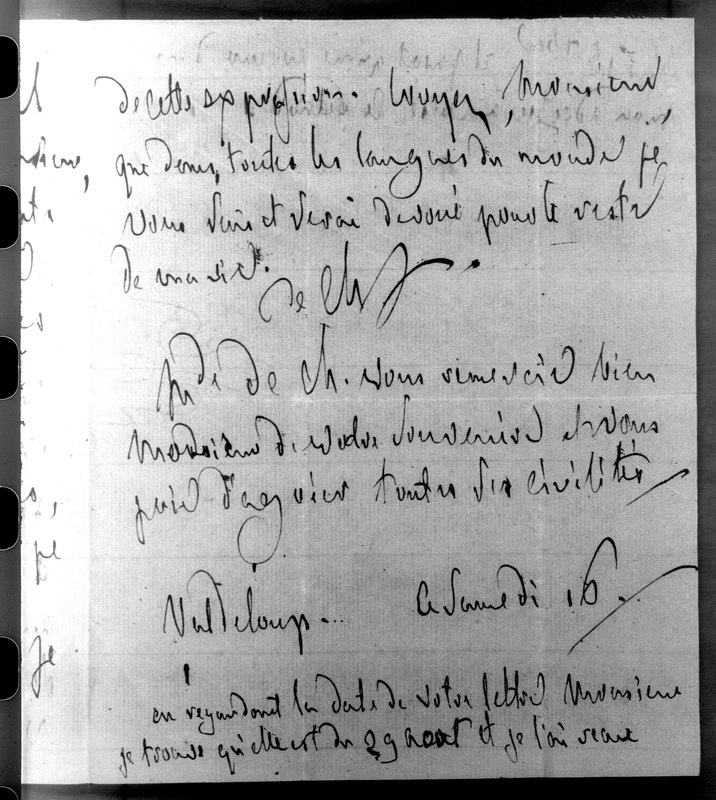 de cette expression. Croyez, Monsieur
que dans toutes les langues du monde je
vous suis et serai devoué pour le reste
de ma vie.
de Ch
Mde de Ch. vous remercie bien
Monsieur de votre souvenir et vous
prie d'agréer toutes ses civilités
Val de loup. ce samedi 16.
en regardant la date de votre lettre Monsieur
je trouve qu'elle est du 29 aout et je l'ai
je
je